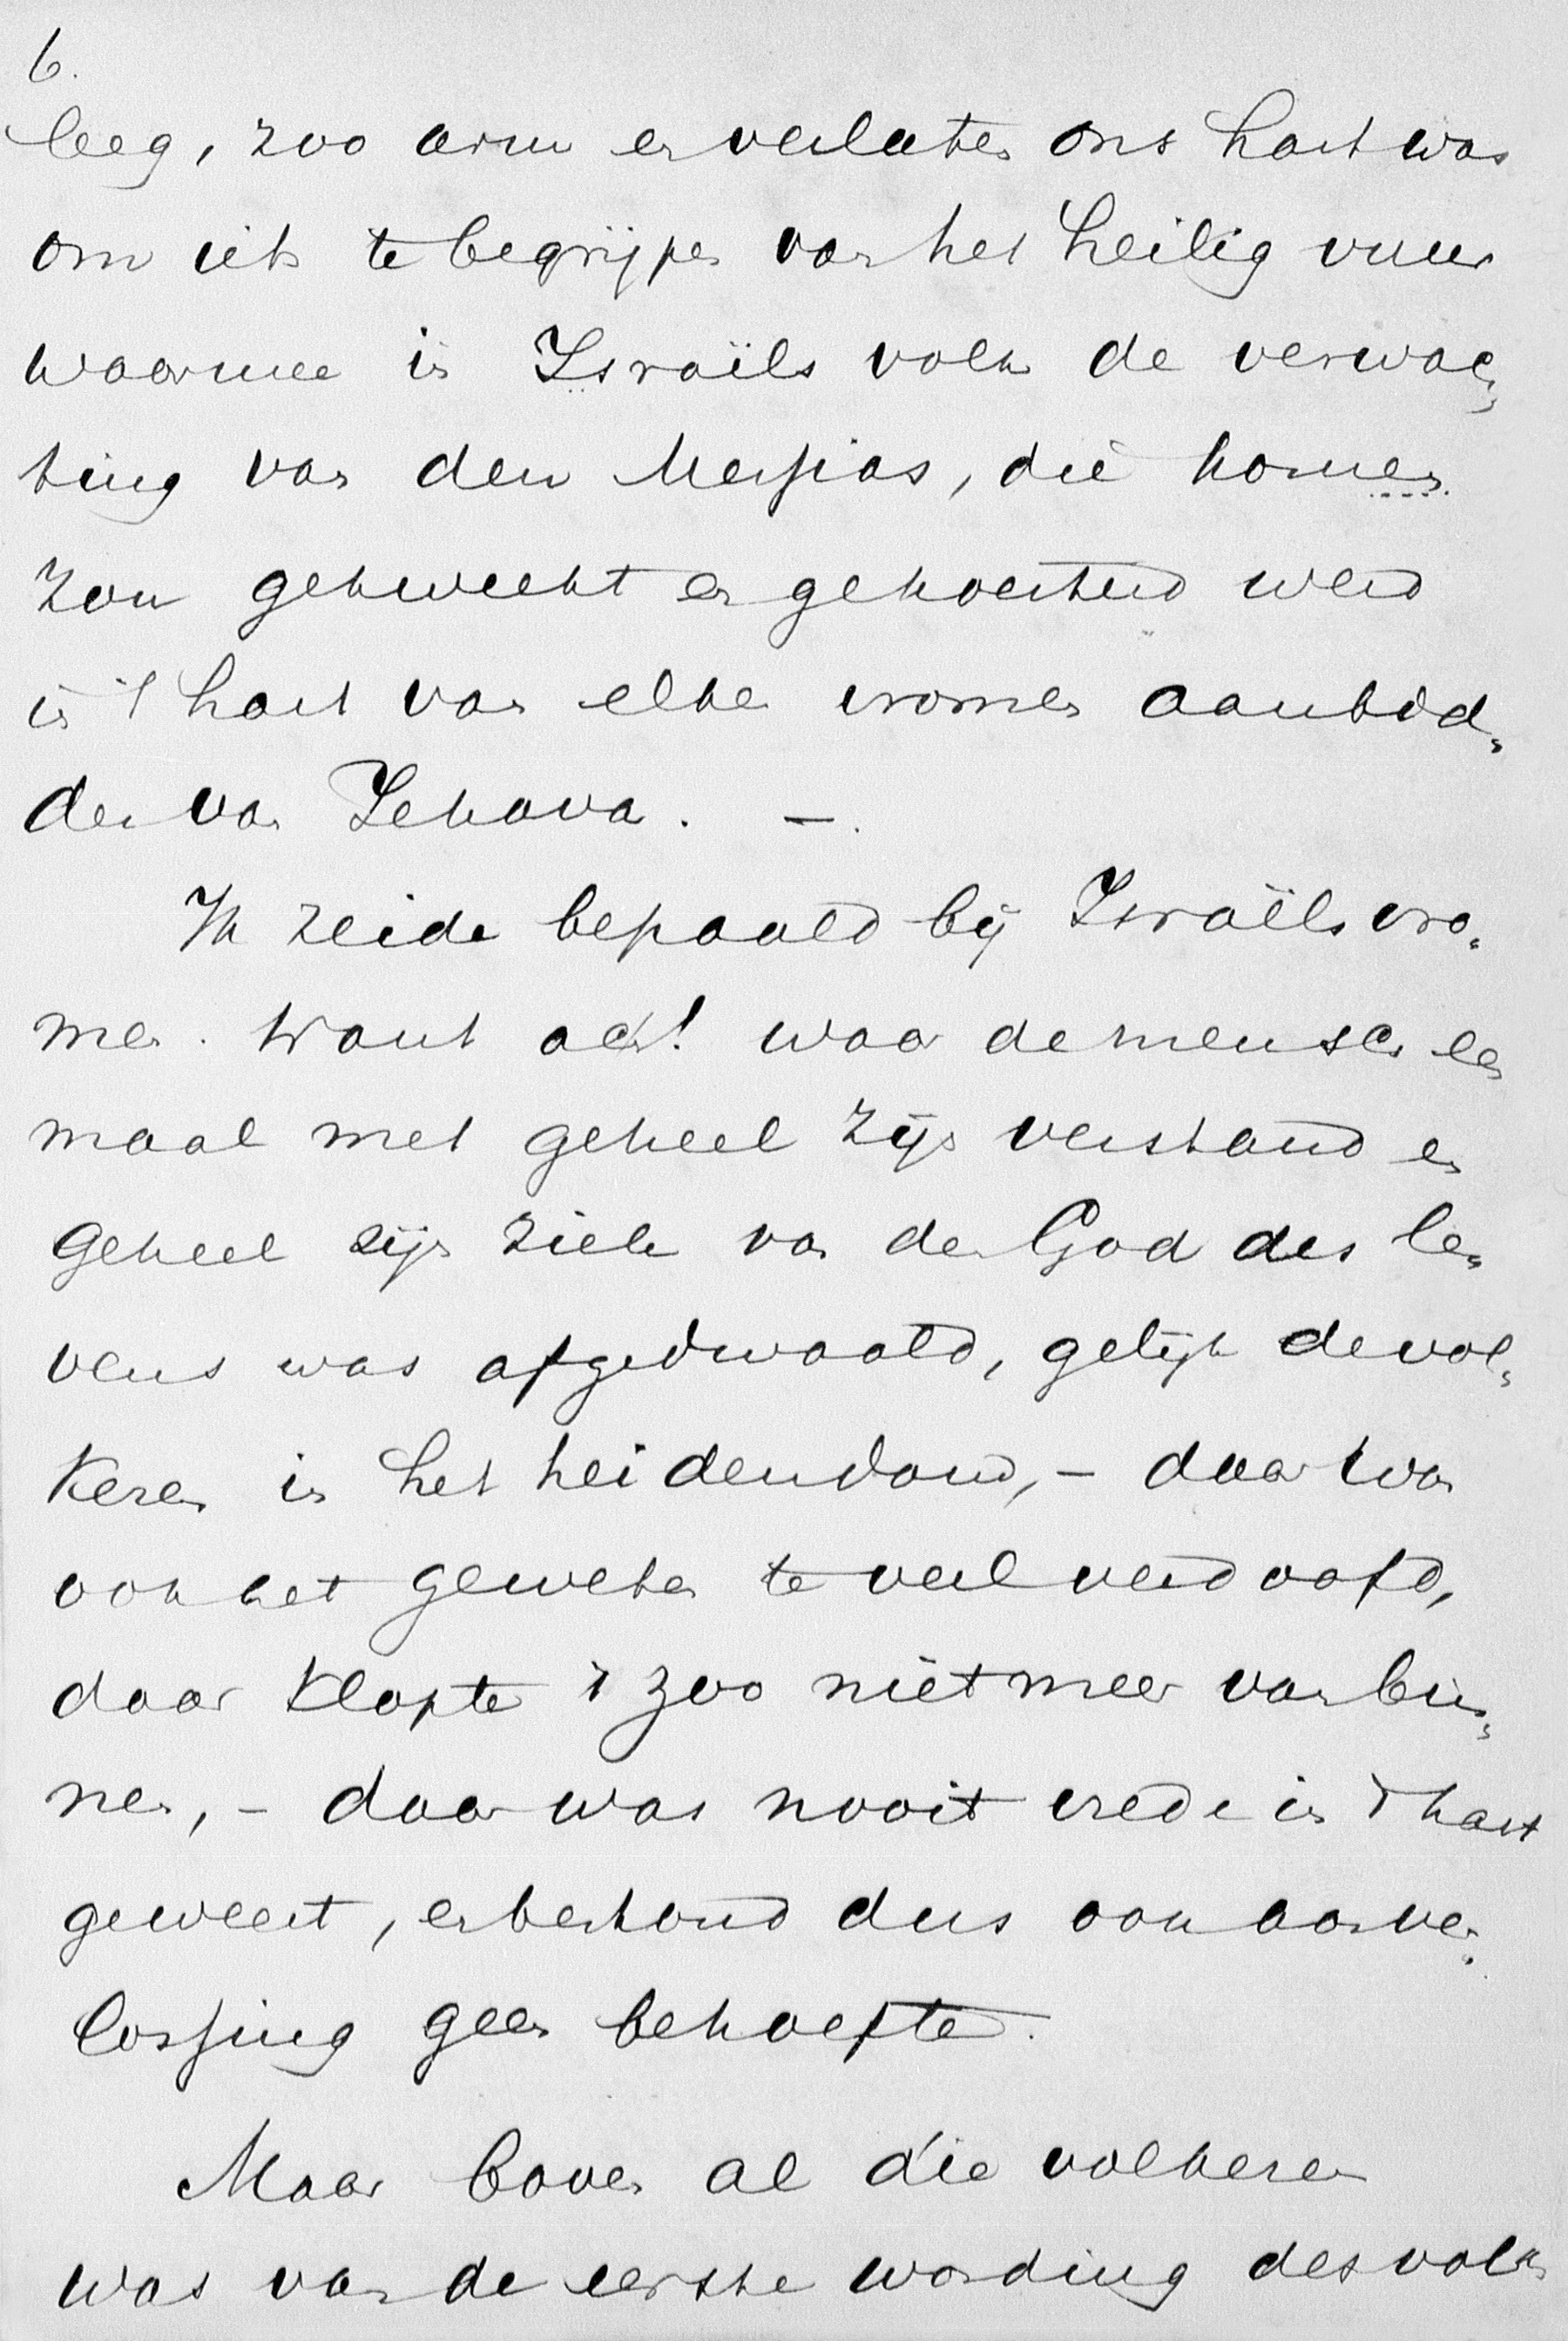 6.
leeg, zoo arm en verlaten ons hart was
om iets te begrijpen van het heilig vuur
waarmee in Israëls volk de verwach-
ting van den Messias, die komen
zou gekweekt en gekoesterd werd
in 't hart van elken vromen aanbid-
der van Jehova. —.
Ik zeide bepaald bij Israëls vro-
men. Want ach! waar de mensch een
maal met geheel zijn verstand en
geheel zijn ziele van den God des le-
vens was afgedwaald, gelijk de vol-
keren in het heidendom, – daar was
ook het geweten te veel verdoofd,
daar klopte 't zoo niet meer van bin-
nen, – daar was nooit vrede in 't hart
geweest, er bestond dus ook aan ver-
lossing geen behoefte.
Maar boven al die volkeren
was van de eerste wording des volks